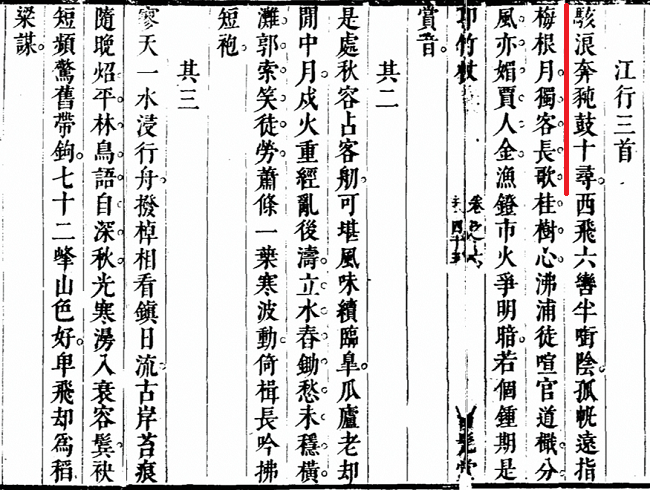 江行三首
駭浪奔豗鼓十尋西飛六轡半銜陰孤帆遠指
梅根月獨客長歌桂樹心沸浦徒喧官道檝分
風亦媚賈人金漁鐙市火爭明暗若個鍾期是
賞音
其二
是處秋容占客舠可堪風味續臨皐瓜廬老却
閒中月戍火重經亂後濤立水春鋤愁未穩橫
灘郭索笑徒勞蕭條一葉寒波動倚楫長吟拂
短袍
其三
寥天一水浸行舟撥棹相看鎭日流古岸苔痕
隨晚炤平林鳥語自深秋光寒湯入衰容鬂袂
短頻驚舊帶鉤七十二峰山色好卑飛却為稻
梁謀